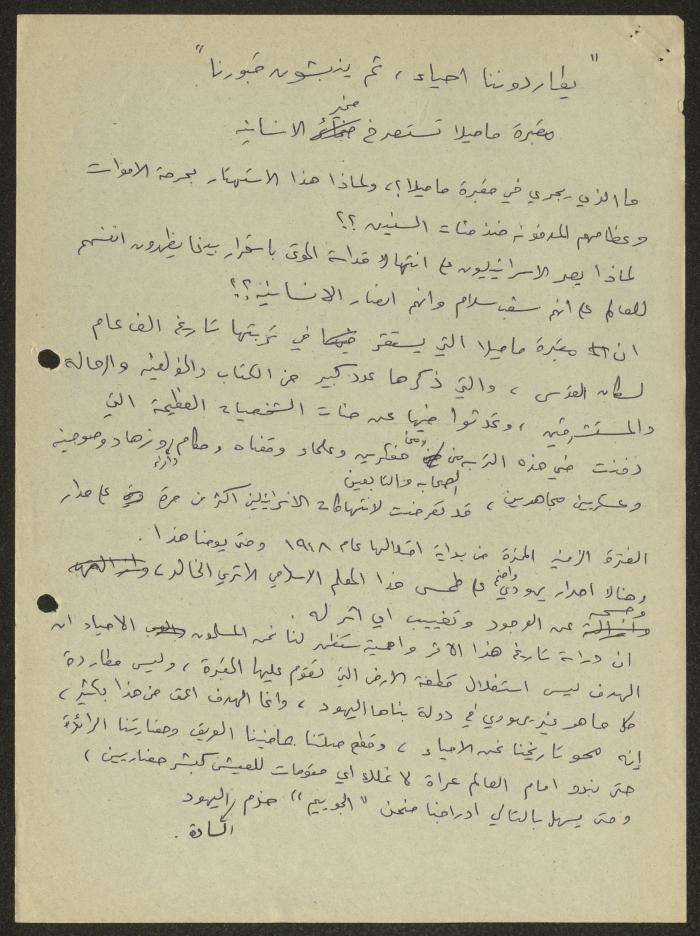 "يطاردوننا احياء ، ثم ينبشون قبورنا"
مقبرة ماميلا تستصرخ ضمير الانسانية
ما الذي يجري في مقبرة ماميلا؟، ولماذا هذا الاستهتار بحرمة الاموات
وعظامهم المدفونة منذ مئات السنين ؟؟
لماذا يصر الاسرائيليون على انتهاك قداسة الموتى باستمرار بينما يظهرون انفسهم
للعالم على انهم شعب سلام وانهم انصار الانسانية؟؟
ان مقبرة ماميلا التي يستقر في تربتها تاريخ الف عام
لسكان القدس ، والتي ذكرها عدد كبير من الكتاب والمؤلفين والرحالة
والمستشرقين ، وتحدثوا فيها عن مئات الشخصيات العظيمة التي
دفنت في هذه التربة من ومن مفكرين وعلماء وقضاه وحكام وزهاد وصوفية
وامراء
الصحابة والتابعين
وعسكريين مجاهدين ، قد تعرضت لانتهاكات الاسرائيلين اكثر من مرة على مدار
الفترة الزمنية الممتدة من بداية احتلالها عام ١٩٤٨ وحتى يومنا هذا .
وهناك اصرار يهودي واضح على طمس هذا المعلم الاسلامي الاثري الخالد ،
عن الوجود وتغييب اي اثر له
ان دراسة تاريخ هذا الاثر واهميته ستظهر لنا نحن المسلمون الاحياء ان
الهدف ليس استغلال قطعة الارض التي تقوم عليها المقبرة ، وليس مطاردة
كل ما هو غير يهودي في دولة بناها اليهود ، وانما الهدف اعمق من هذا بكثير ،
إنه محو تاريخنا نحن الاحياء ، وقطع صلتنا بماضينا العريق وحضارتنا الرائدة
حتى نبدو امام العالم عراة لا نملك اي مقومات للعيش كبشر حضاريين ،
وحتى يسهل بالتالي ادراجنا ضمن "الجوييم" خدم اليهود
السادة .